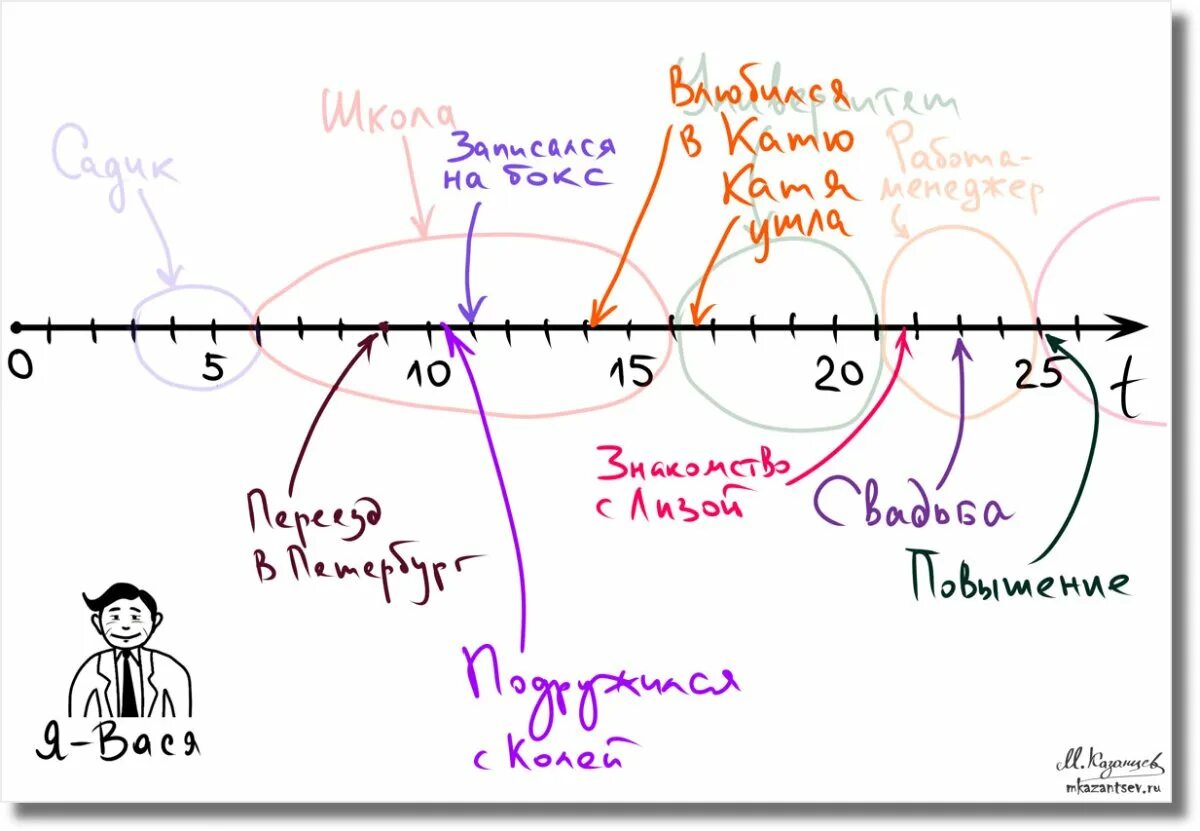 Садик
Школа
Записался
на бокс
Влюбился
в Катю
Катя
ушла
Университет
Работа-
менеджер
0
5
10
15
20
25
t
Переезд
в Петербург
Подружился
с Колей
Знакомство
с Лизой
Свадьба
Повышение
Я-Вася
М.Казанцев
mkazantsev.ru